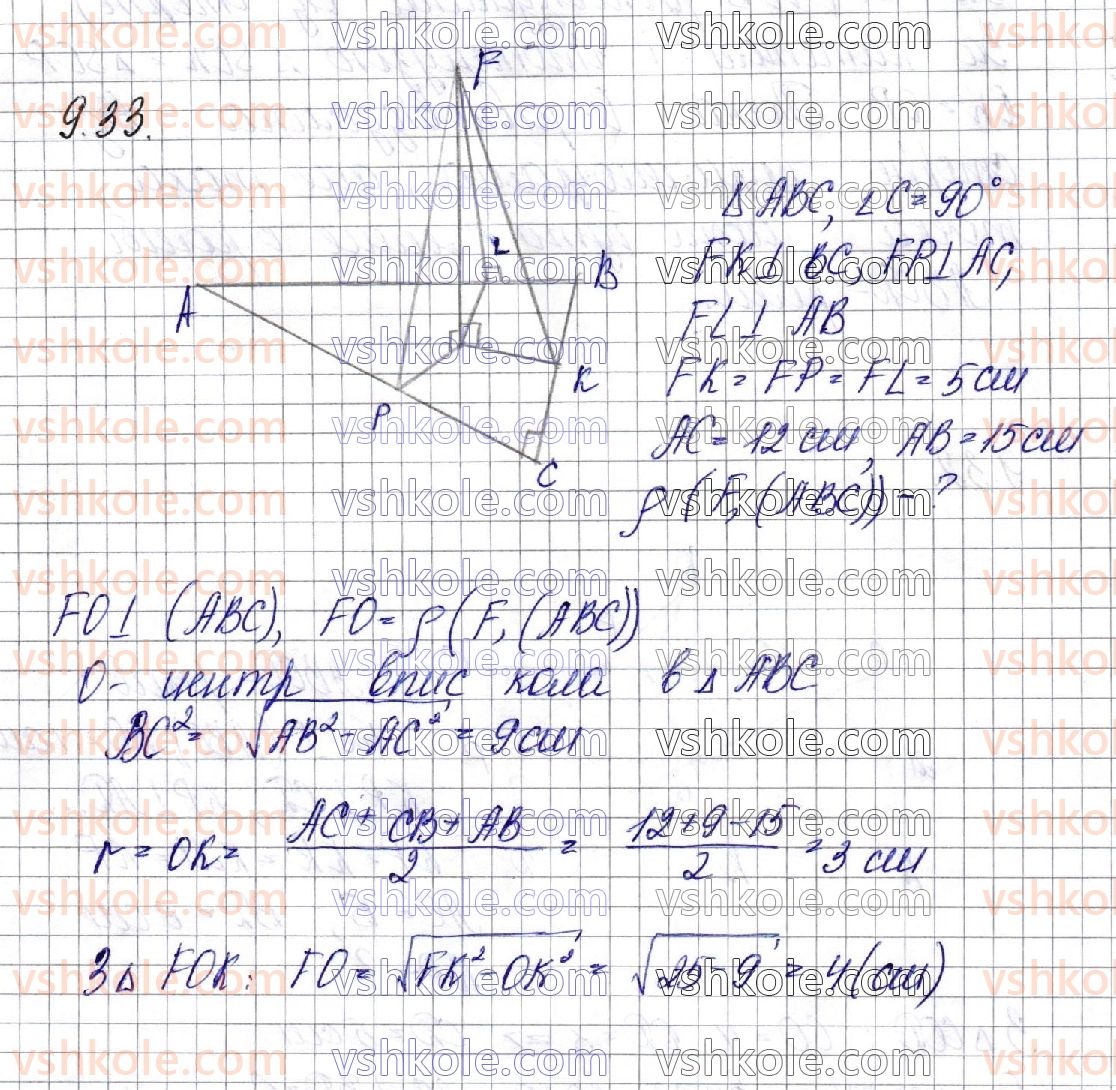 9.33.
F
L
B
A
K
P
C
Δ ABC, ∠C = 90°
FK ⊥ BC, FP ⊥ AC,
FL ⊥ AB
FK = FP = FL = 5 см
AC = 12 см, AB = 15 см
ρ (F, (ABC)) - ?
FO ⊥ (ABC), FO = ρ (F, (ABC))
O - центр впис кола в Δ ABC
BC² = √(AB² - AC²) = 9 см
r = OK = (AC + CB + AB)/2 = (12 + 9 - 15)/2 = 3 см
З Δ FOK: FO = √(FK² - OK²) = √(25 - 9) = 4 (см)
vshkole.com